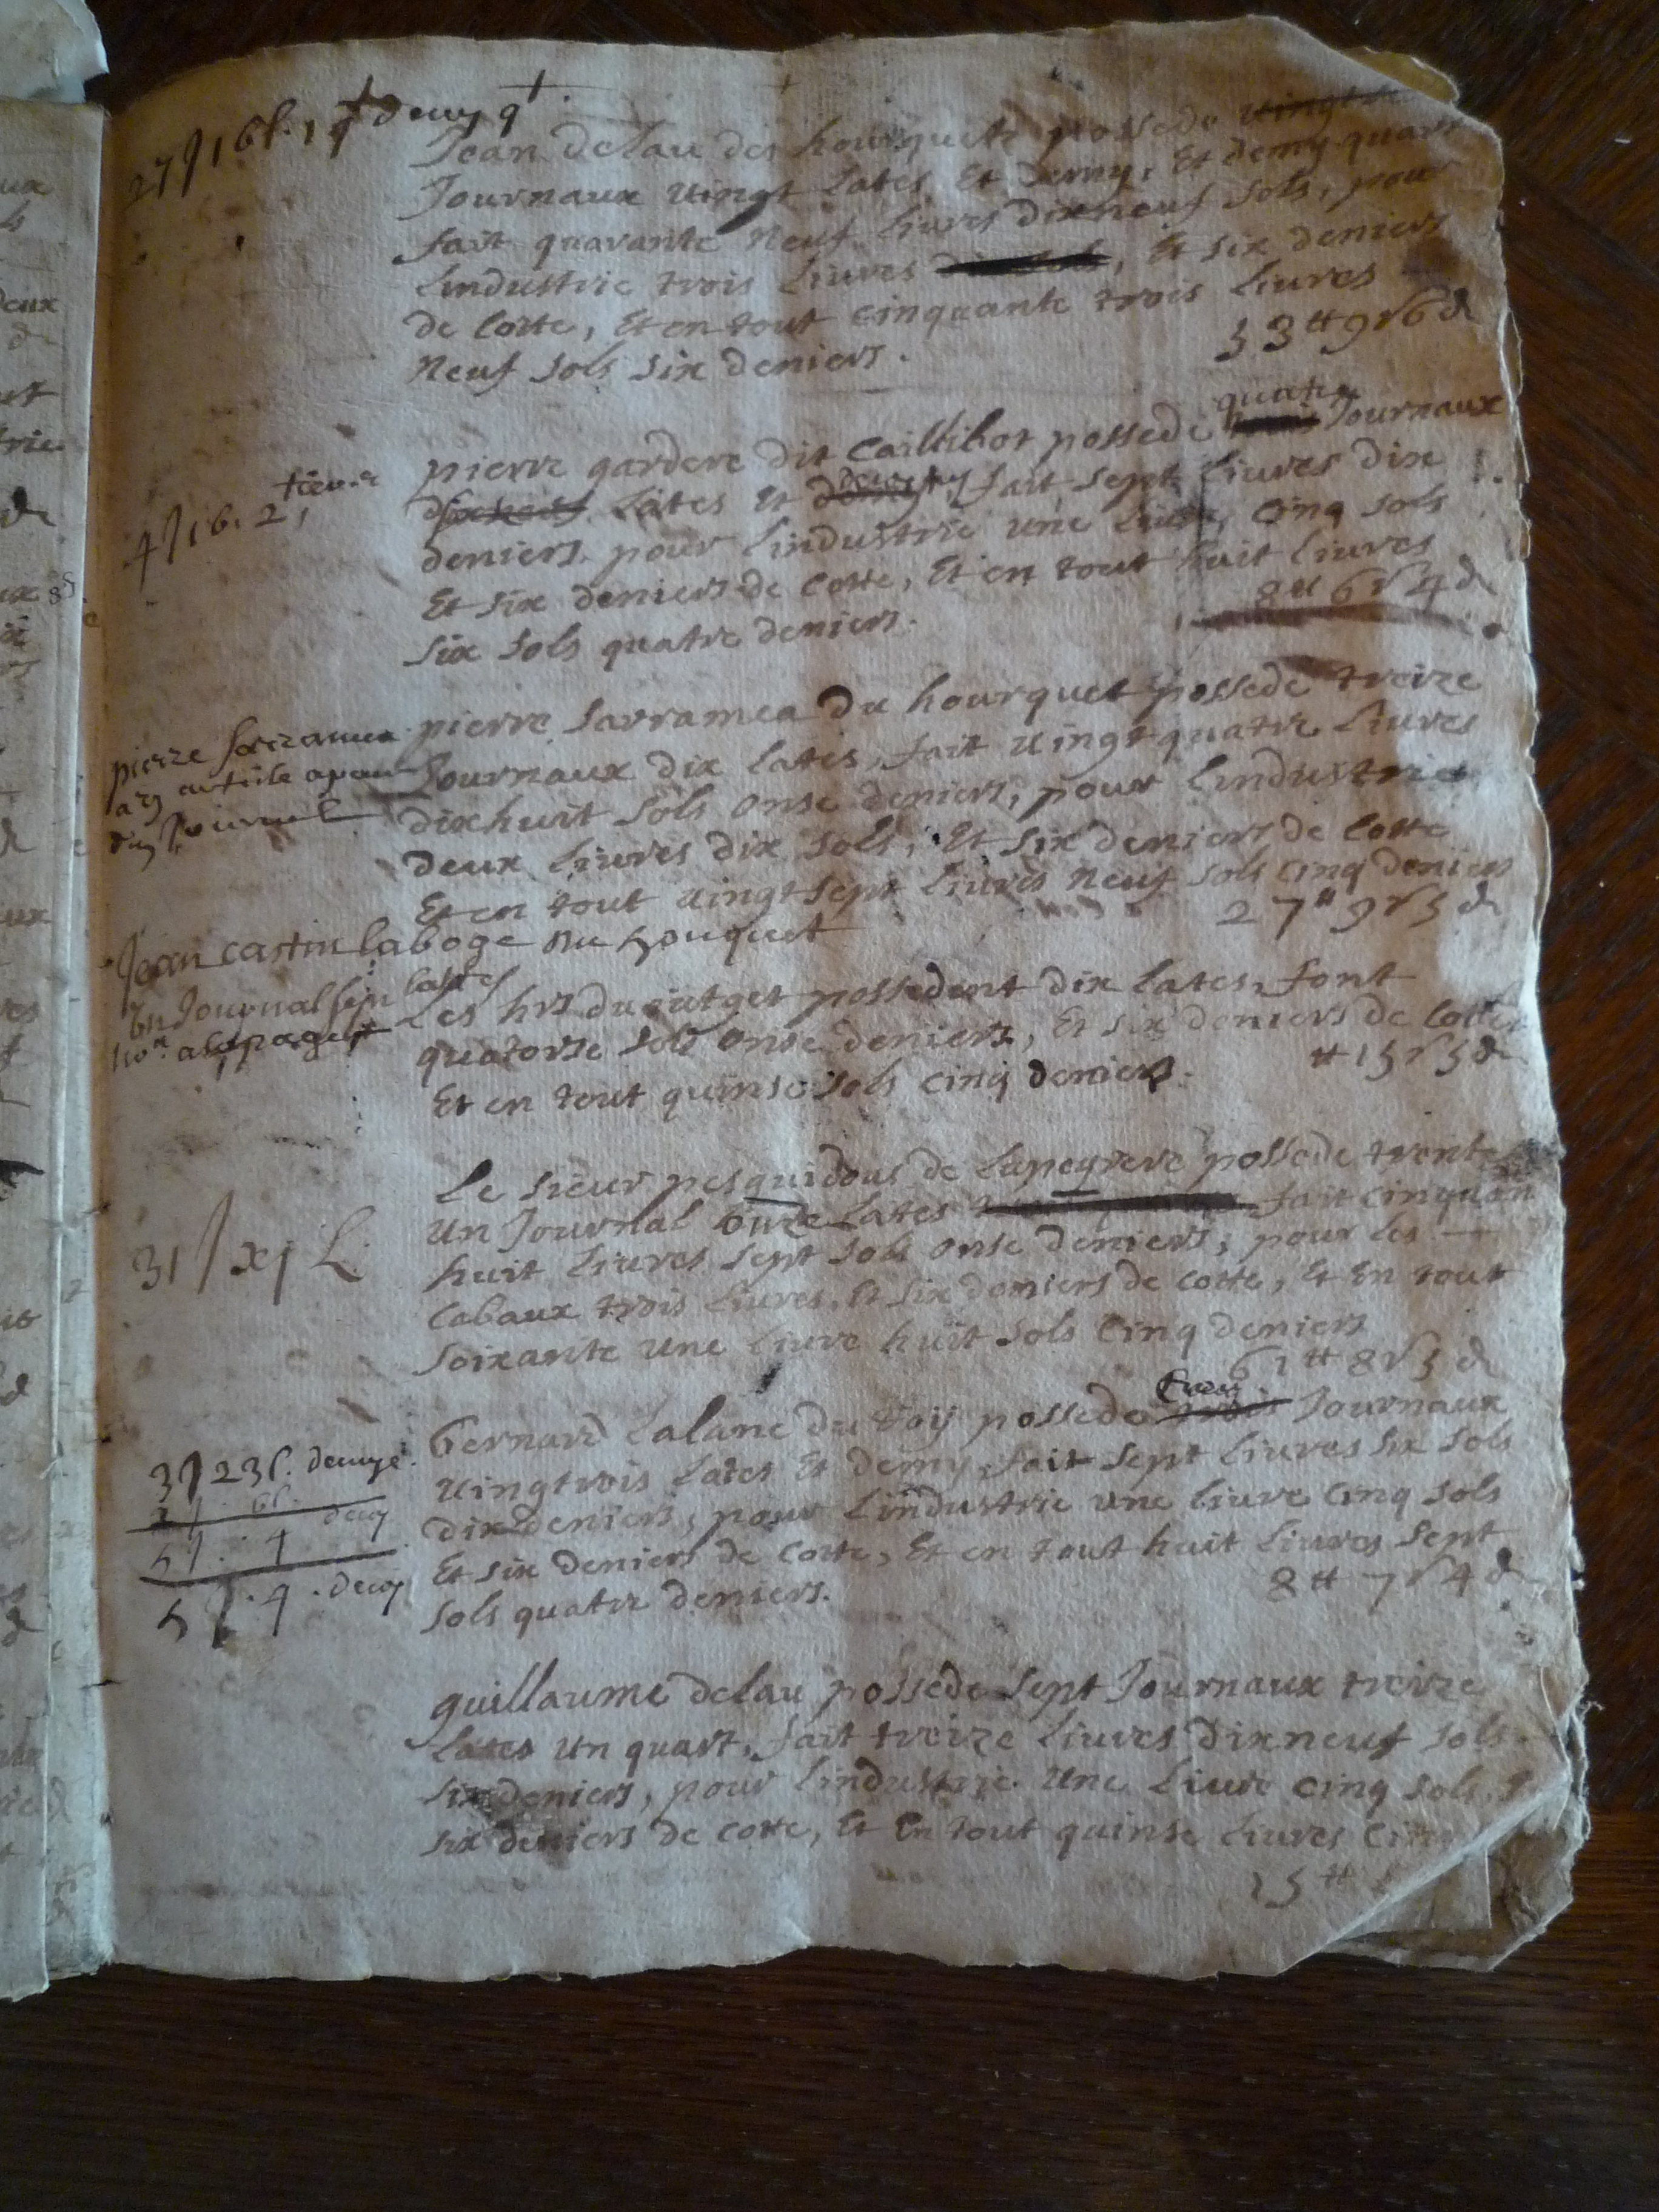 27 J 16 l. 1 qt demy qt.
Jean delau des hourquete possede vingt
Journaux vingt Lates Et demy, Et demy quart
fait quarante Neuf Livres dixneuf sols, pour
Lindustrie trois Livres, Et six deniers
de Cotte, Et en tout cinquante trois Livres
Neuf sols six deniers.
53 tt 9 s 6 d
quatre
pierre gardere dit Caillibot possede Journaux
4 J 16. 2 tier
Lates Et fait sept Livres dix
deniers pour Lindustrie une Livre, Cinq sols
Et six deniers de Cotte, Et en tout huit Livres
six sols quatre deniers.
8 tt 6 s 4 d
pierre Sarramea du hourquet possede treize
Journaux dix Lates, fait vingt quatre Livres
dixhuit sols onse deniers, pour Lindustrie
deux Livres dix sols, Et six deniers de Cotte
Et en tout vingt sept Livres Neuf sols Cinq deniers
27 tt 9 s 5 d
pierre sarramea
Journal
Jean castin laboge du houquet
un Journal sept lattes
Les hrs du possedent dix Lates, font
quatorse sols onse deniers, Et six deniers de Cotte
Et en tout quinse sols cinq deniers.
tt 15 s 5 d
Le sieur pesquidous de Lapeyrere possede trente
Un Journal onze Lates fait cinquante
huit Livres sept sols onse deniers, pour les
Cabaux trois Livres, Et six deniers de Cotte, Et En tout
soixante une Livre huit sols Cinq deniers
61 tt 8 s 5 d
31 J xj L.
bernard Lalane du toij possede Journaux
vingtrois Lates Et demy, fait sept Livres six sols
dix deniers, pour Lindustrie une livre cinq sols
Et six deniers de Cotte, Et en tout huit Livres sept
sols quatre deniers.
8 tt 7 s 4 d
3 J 23 l. demye.
6 l.
5 J. 4 demy
5 J. 4. demy
guillaume delau possede sept Journaux treize
Lates un quart, fait treize Livres dixneuf sols
six deniers, pour Lindustrie une Livre cinq sols,
six deniers de cotte, Et En tout quinse Livres
15 tt